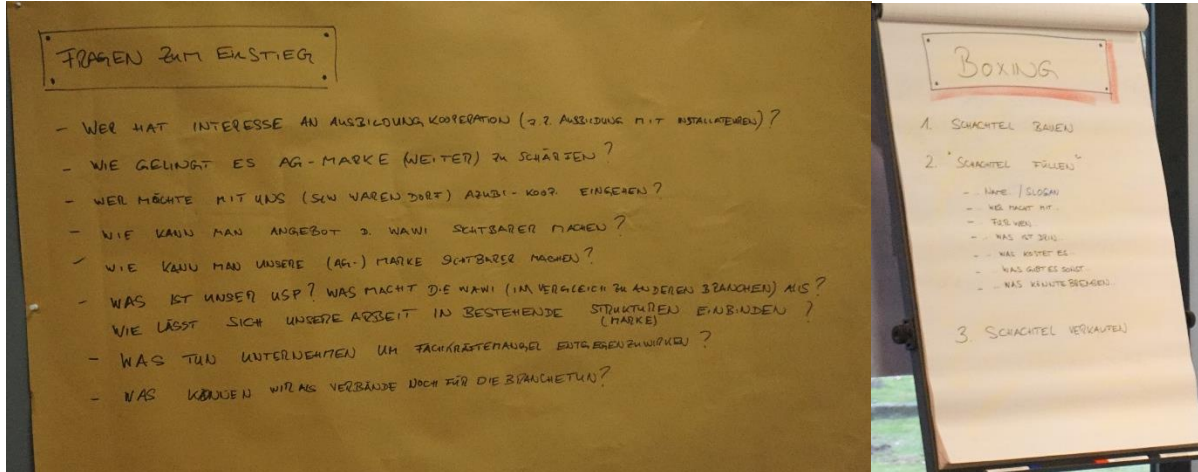 FRAGEN ZUM EINSTIEG
- WER HAT INTERESSE AN AUSBILDUNG KOOPERATION (z.B. AUSBILDUNG MIT INSTALLATEUREN)?
- WIE GELINGT ES AG-MARKE (WEITER) ZU SCHÄRFEN?
- WER MÖCHTE MIT UNS (SCW WAREN DORF) AZUBI-KOOP. EINGEHEN?
- WIE KANN MAN ANGEBOT D. WAWI SICHTBARER MACHEN?
- WIE KANN MAN UNSERE (AG-) MARKE SICHTBARER MACHEN?
- WAS IST UNSER USP? WAS MACHT DIE WAWI (IM VERGLEICH ZU ANDEREN BRANCHEN) AUS?
WIE LÄSST SICH UNSERE ARBEIT IN BESTEHENDE STRUKTUREN EINBINDEN?
(MARKE)
- WAS TUN UNTERNEHMEN UM FACHKRÄFTEMANGEL ENTGEGENZUWIRKEN?
- WAS KÖNNEN WIR ALS VERBÄNDE NOCH FÜR DIE BRANCHE TUN?
BOXING
1. SCHACHTEL BAUEN
2. "SCHACHTEL FÜLLEN"
- NAME / SLOGAN
- WER MACHT MIT..
- FÜR WEN..
- WAS IST DRIN..
- WAS KOSTET ES..
- WAS GIBT ES SONST..
- WAS KÖNNTE BREMSEN..
3. SCHACHTEL VERKAUFEN